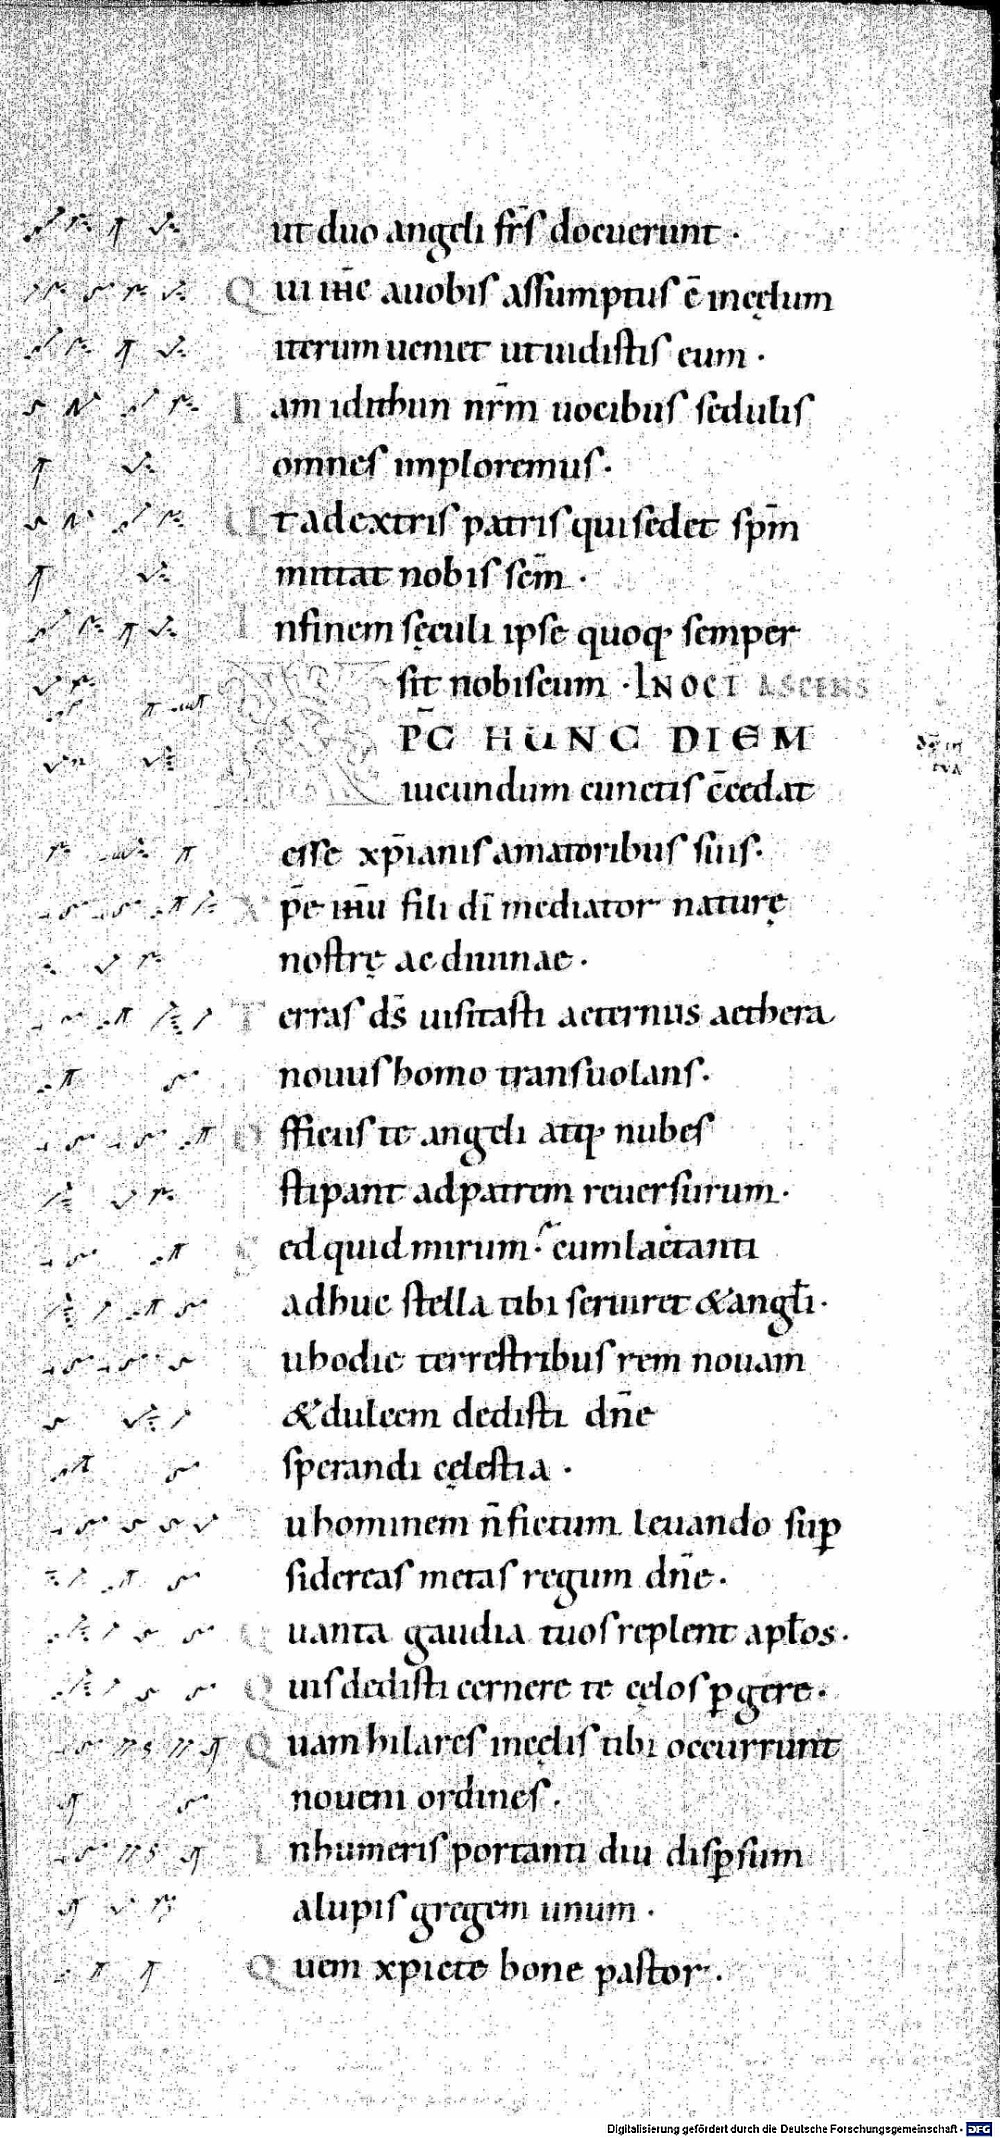 ut duo angeli fr̄s docuerunt ·
Qui ih̄c a uobis assumptus ē in cęlum
iterum ueniet ut uidistis eum ·
Iam id ithun nr̄m uocibus sedulis
omnes imploremus ·
Ut ad extris patris qui sedet spm̄
mittat nobis sc̄m ·
In finem sęculi ipse quoq· semper
sit nobiscum · IN OCT ASCENS
XP̄C HUNC DIEM
iucundum cunctis c̄cedat
esse xp̄ianis amatoribus suis ·
Xp̄e ih̄u fili dī mediator naturę
nostrę ac diuinae ·
Terras ds̄ uisitasti aeternus aethera
nouus homo transuolans ·
Officiis te angeli atq· nubes
stipant ad patrem reuersurum ·
Sed quid mirum · cum lactanti
adhuc stella tibi seruiret & angłi ·
Tu hodie terrestribus rem nouam
& dulcem dedisti dn̄e
sperandi cęlestia ·
Tu hominem n̄ fictum leuando sup
sidereas metas regum dn̄e ·
Quanta gaudia tuos replent apłos ·
Quis dedisti cernere te cęlos pgere ·
Quam hilares in cęlis tibi occurrunt
nouem ordines ·
In humeris portanti diu dispsum
a lupis gregem unum ·
Quem xpicte bone pastor ·
Digitalisierung gefördert durch die Deutsche Forschungsgemeinschaft - DFG